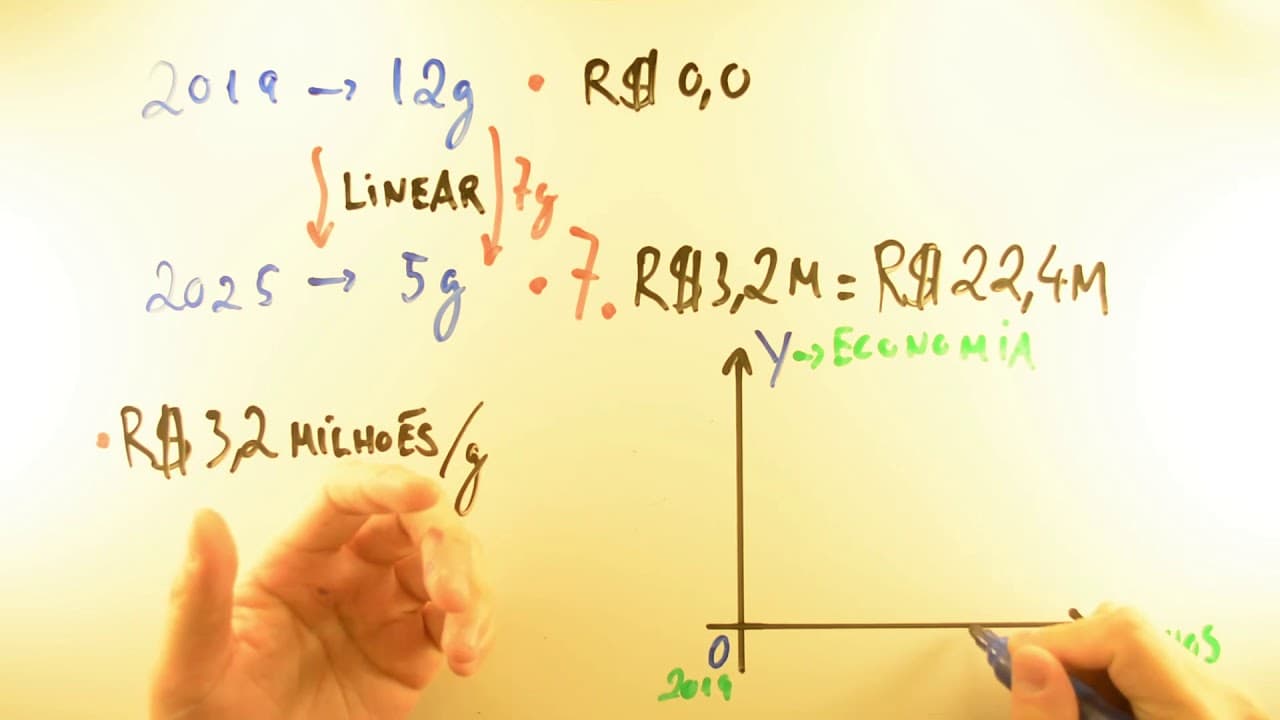 2019 → 12g • R$ 0,0
LINEAR 7g
2025 → 5g • 7. R$3,2M = R$22,4M
Y → ECONOMIA
• R$ 3,2 MILHOES/g
0
2019